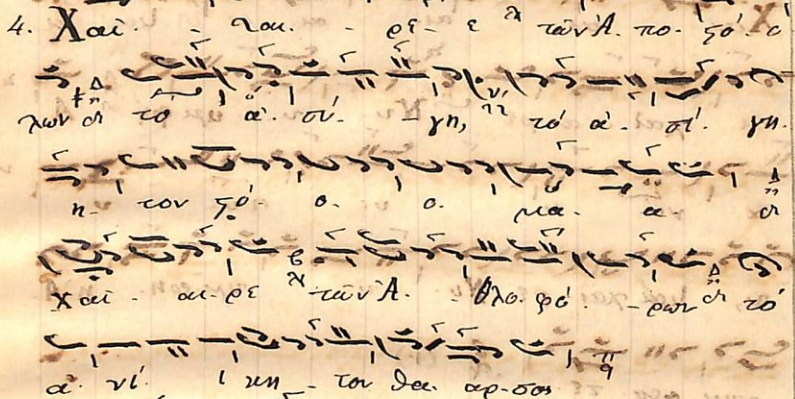 4. Χαῖ - και - ρε - ε τῶν Ἀ πο - στό ό
λων τὸ ἀ - σί - γη, τὸ ἀ - σί - γη -
η - τον στό - ο - ο - μα - α -
χαῖ - αι - ρε τῶν Ἀ - θλο - φό - ρων τὸ
ἀ - νί - ι κη - τον θα αρ - σος